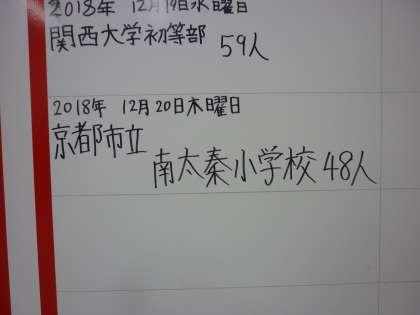 2018年 12月19日水曜日
関西大学初等部 59人
2018年 12月20日木曜日
京都市立
南太秦小学校 48人